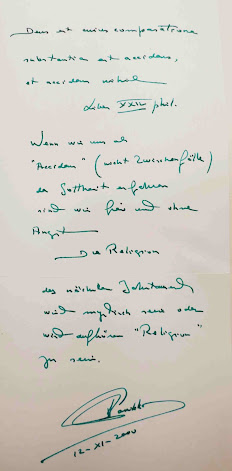 Deus est cuius comparatione
substantia est accidens,
et accidens nihil
Liber XXIV phil.
Wenn wir uns als
"Accidens" (nicht Zwischenfälle)
der Gottheit erfahren
sind wir frei und ohne
Angst
Die Religion
des nächsten Jahrtausends
wird mystisch sein oder
wird aufhören "Religion"
zu sein.
12-XI-2000